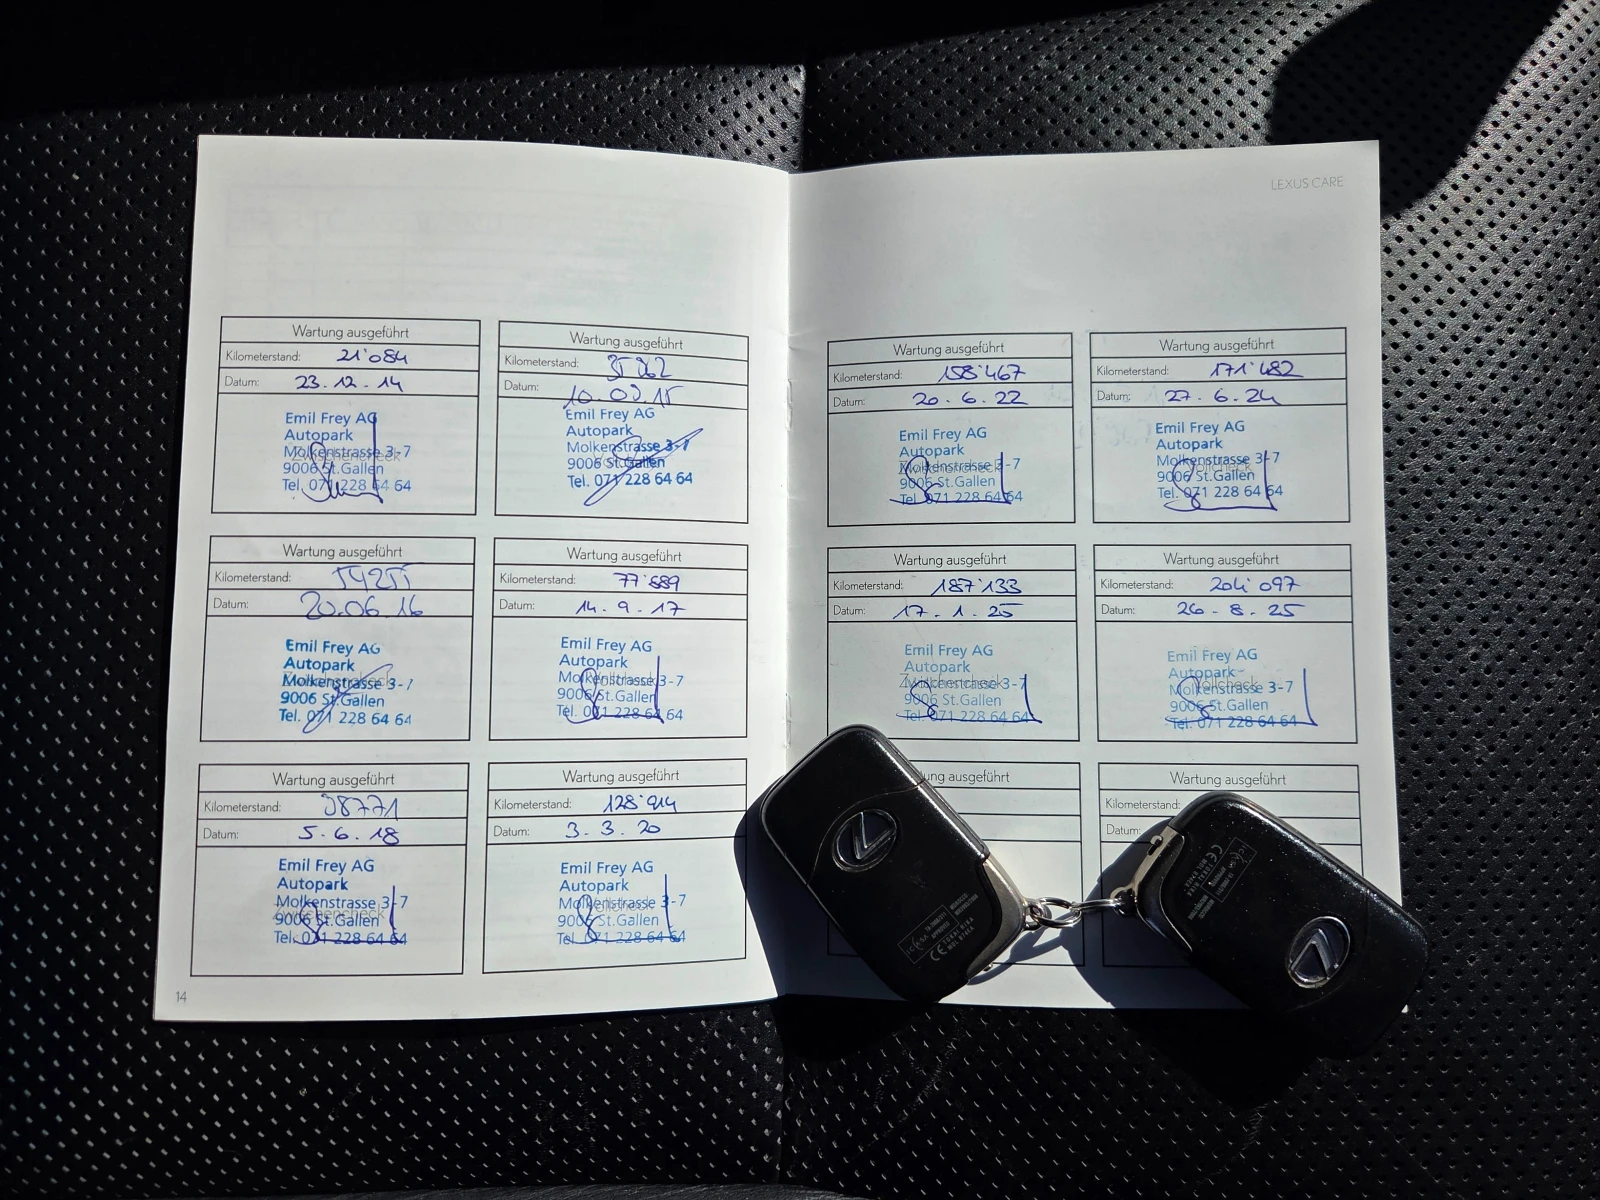 LEXUS CARE
Wartung ausgeführt
Kilometerstand: 21'084
Datum: 23.12.14
Emil Frey AG
Autopark
Molkenstrasse 3-7
9006 St.Gallen
Tel. 071 228 64 64
Zwischencheck
Wartung ausgeführt
Kilometerstand:
Datum:
Emil Frey AG
Autopark
Molkenstrasse 3-7
9006 St.Gallen
Tel. 071 228 64 64
Wartung ausgeführt
Kilometerstand: 54255
Datum: 20.06.16
Emil Frey AG
Autopark
Molkenstrasse 3-7
9006 St.Gallen
Tel. 071 228 64 64
Wartung ausgeführt
Kilometerstand: 77'889
Datum: 14.9.17
Emil Frey AG
Autopark
Molkenstrasse 3-7
9006 St.Gallen
Tel. 071 228 64 64
Vollcheck
Wartung ausgeführt
Kilometerstand: 98771
Datum: 5.6.18
Emil Frey AG
Autopark
Molkenstrasse 3-7
9006 St.Gallen
Tel. 071 228 64 64
Zwischencheck
Wartung ausgeführt
Kilometerstand: 128'914
Datum: 3.3.20
Emil Frey AG
Autopark
Molkenstrasse 3-7
9006 St.Gallen
Tel. 071 228 64 64
Vollcheck
14
Wartung ausgeführt
Kilometerstand: 158'467
Datum: 20.6.22
Emil Frey AG
Autopark
Molkenstrasse 3-7
9006 St.Gallen
Tel. 071 228 64 64
Zwischencheck
Wartung ausgeführt
Kilometerstand: 171'482
Datum: 27.6.24
Emil Frey AG
Autopark
Molkenstrasse 3-7
9006 St.Gallen
Tel. 071 228 64 64
Vollcheck
Wartung ausgeführt
Kilometerstand: 187'133
Datum: 17.1.25
Emil Frey AG
Autopark
Molkenstrasse 3-7
9006 St.Gallen
Tel. 071 228 64 64
Zwischencheck
Wartung ausgeführt
Kilometerstand: 204'097
Datum: 26.8.25
Emil Frey AG
Autopark
Molkenstrasse 3-7
9006 St.Gallen
Tel. 071 228 64 64
Vollcheck
ung ausgeführt
Wartung ausgeführt
Kilometerst
Datum: